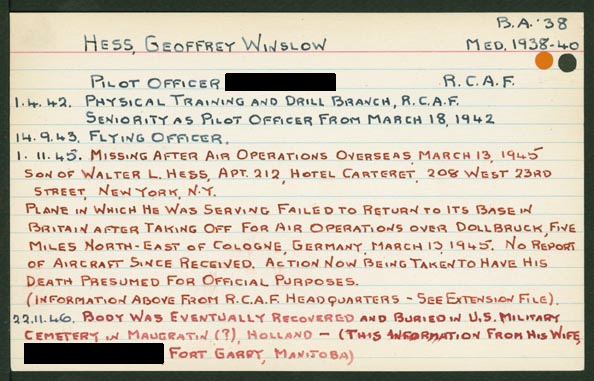 B.A. '38
HESS, GEOFFREY WINSLOW MED. 1938-40
PILOT OFFICER R.C.A.F.
1.4.42. PHYSICAL TRAINING AND DRILL BRANCH, R.C.A.F.
SENIORITY AS PILOT OFFICER FROM MARCH 18, 1942
14.9.43. FLYING OFFICER.
1.11.45. MISSING AFTER AIR OPERATIONS OVERSEAS, MARCH 13, 1945
SON OF WALTER L. HESS, APT. 212, HOTEL CARTERET, 208 WEST 23RD
STREET, NEW YORK, N.Y.
PLANE IN WHICH HE WAS SERVING FAILED TO RETURN TO ITS BASE IN
BRITAIN AFTER TAKING OFF FOR AIR OPERATIONS OVER DOLLBRUCK, FIVE
MILES NORTH-EAST OF COLOGNE, GERMANY, MARCH 13, 1945. NO REPORT
OF AIRCRAFT SINCE RECEIVED. ACTION NOW BEING TAKEN TO HAVE HIS
DEATH PRESUMED FOR OFFICIAL PURPOSES.
(INFORMATION ABOVE FROM R.C.A.F. HEADQUARTERS - SEE EXTENSION FILE).
22.11.46. BODY WAS EVENTUALLY RECOVERED AND BURIED IN U.S. MILITARY
CEMETERY IN MAUGRATIN (?), HOLLAND - (THIS INFORMATION FROM HIS WIFE,
FORT GARRY, MANITOBA)